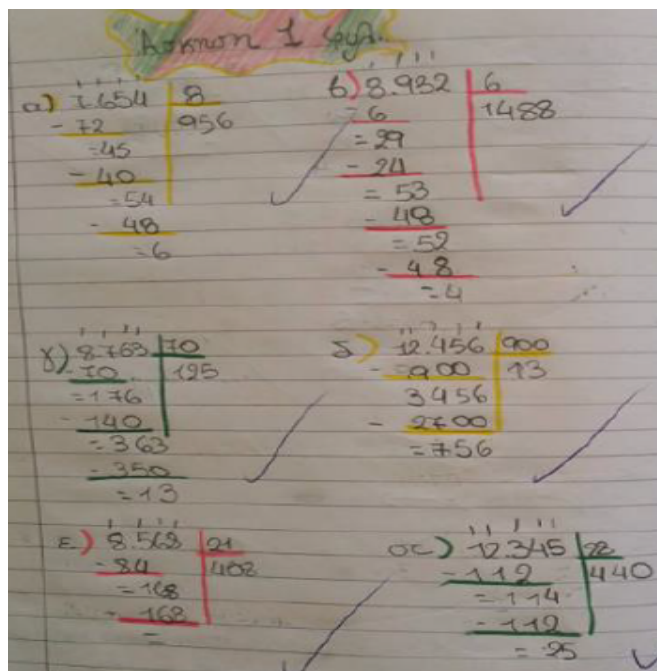 1 φυλ.
α) 7.654 8
- 72 956
=45
- 40
=54
- 48
=6
β) 8.932 6
- 6 1488
= 29
- 24
= 53
- 48
= 52
- 48
=4
γ) 8.763 70
- 70 125
=176
- 140
= 363
- 350
= 13
δ) 12.456 900
- 900 13
3456
- 2700
= 756
ε) 8.568 21
- 84 408
=168
- 168
=
στ) 12.345 28
- 112 440
= 114
- 112
= 25